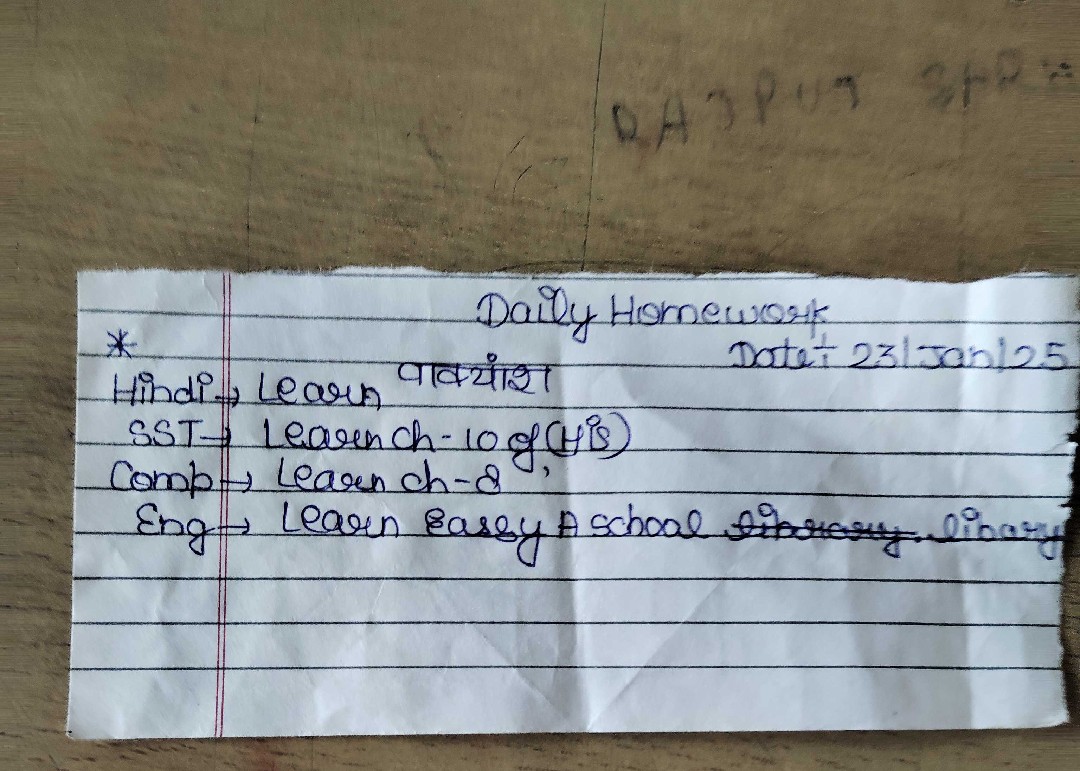 Daily Homework
* Date÷ 23|Jan|25
Hindi → Learn वाक्यांश
SST → Learn ch-10 of (His)
Comp → Learn ch-8
Eng → Learn Eassy A school library. libary